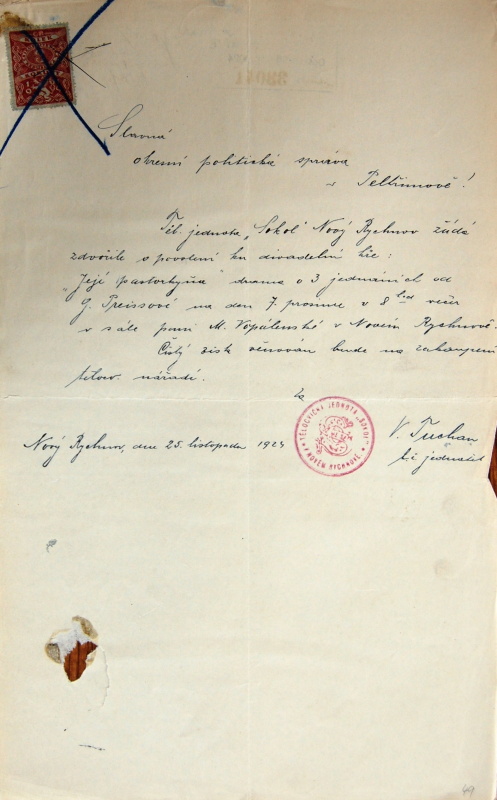 Slavná
okresní politická správa
v Pelhřimově!
Těl. jednota „Sokol" Nový Rychnov žádá
zdvořile o povolení ku divadelní hře:
„Její pastorkyňa" drama o 3 jednáních od
G. Preissové na den 7. prosince v 8 hod večer
v sále paní M. Vopálenské v Novém Rychnově.
Čistý zisk věnován bude na zakoupení
tělocv. nářadí.
Za
TĚLOCVIČNÁ JEDNOTA „SOKOL"
V NOVÉM RYCHNOVĚ.
Nový Rychnov, dne 25. listopadu 1924
V. Tuchan
t. č. jednatel
49